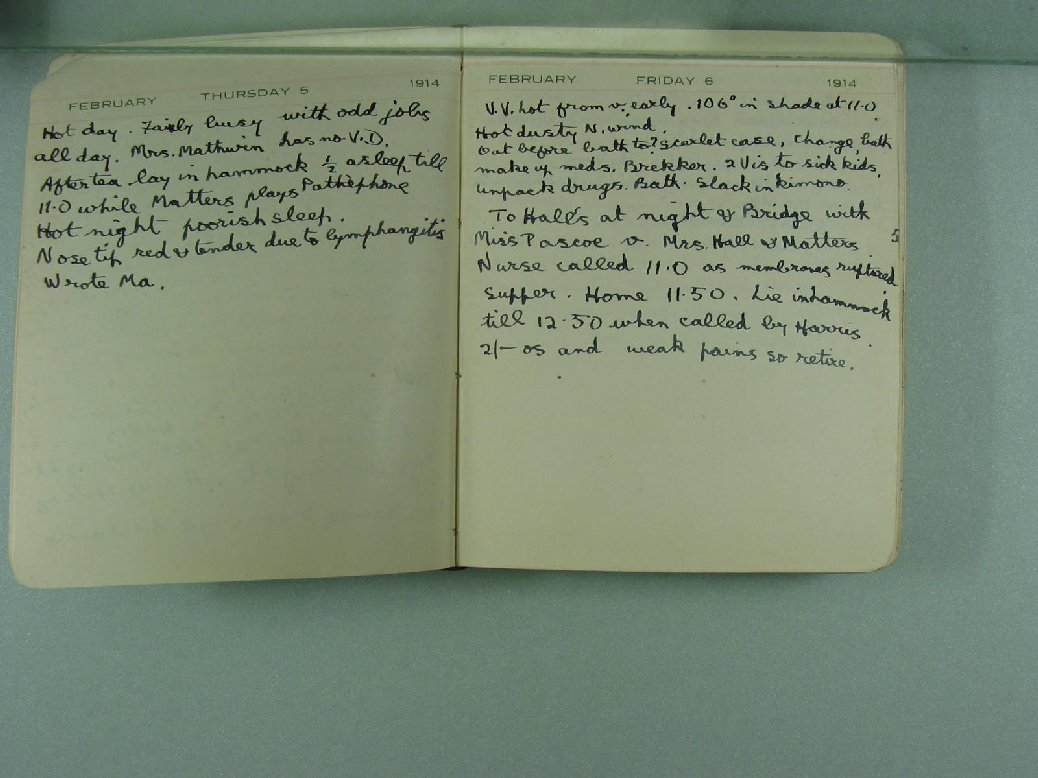 FEBRUARY THURSDAY 5 1914
Hot day. Fairly busy with odd jobs
all day. Mrs. Mathwin has no V.D.
After tea lay in hammock ½ asleep till
11.0 while Matters plays Pathephone
Hot night poorish sleep.
Nose tip red & tender due to lymphangitis
Wrote Ma.
FEBRUARY FRIDAY 6 1914
V.V. hot from v. early. 106° in shade at 11.0.
Hot dusty N. wind.
Out before bath to ? Scarlet case, change, bath
make up meds. Brekker. 2 Vis to sick kids,
unpack drugs. Bath. Slack in kimono.
To Hall's at night & Bridge with
Miss Pascoe v. Mrs. Hall & Matters 5
Nurse called 11.0 as membranes ruptured
Supper. Home 11.50. Lie in hammock
till 12.50 when called by Harris.
2/- os and weak pains so retire.